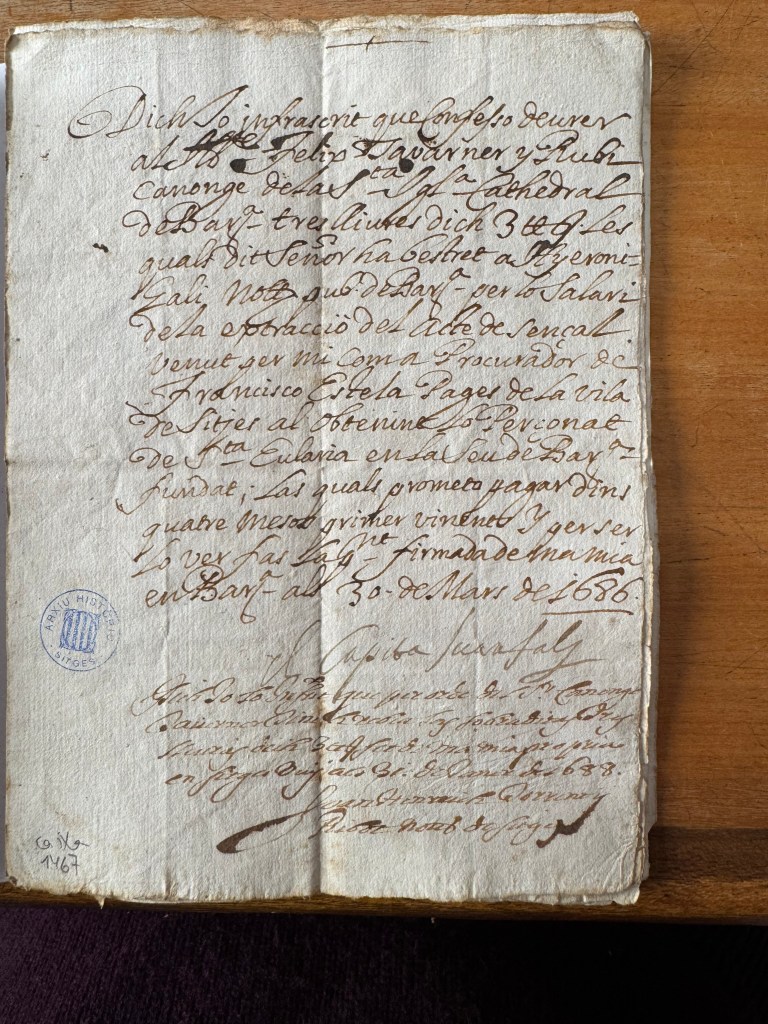 Dich Jo infrascrit que Confesso deurer
al Illtre Felix Tavarner y Rubi
canonge de la Sta Igla Cathedral
de Barna tres lliures dich 3 ll les
quals dit Señor ha bestret a Hyeroni
Gali Nott pub. de Barna per lo Salari
de la extraccio del Acte de sençal
venut per mi com a Procurador de
Francisco Estela Pages de la vila
de Sitjes al obtenint lo Perçonat
de Sta Eularia en la Seu de Barna
fundat; las quals prometo pagar dins
quatre mesos primer vinents Y per ser
lo ver fas la pnt firmada de ma mia
en Barna als 30 de Mars de 1686.
Capita Juan
Dich Jo lo que per orde del Sr Canonge
Tavarner
lliuras de ma mia propria
en Sitges 31 de de 1688.
Juan
Nott de Sitges
ARXIU HISTÒRIC
SITGES
caixa
1467